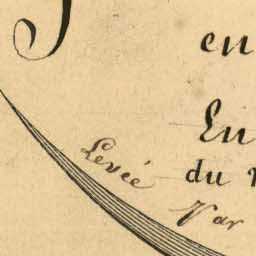 en
En
Levée
du
Var